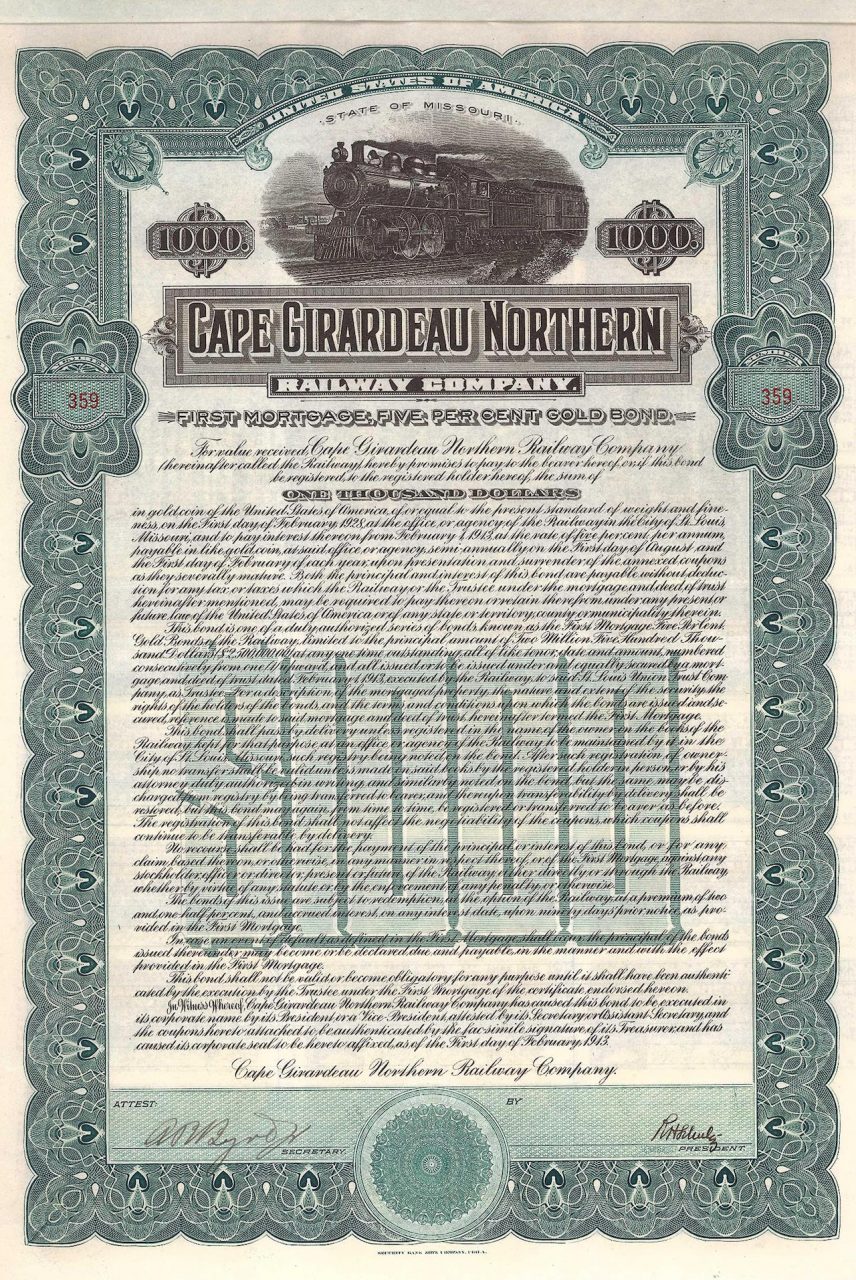 UNITED STATES OF AMERICA
STATE OF MISSOURI.
1000. 1000.
CAPE GIRARDEAU NORTHERN
RAILWAY COMPANY.
NUMBER NUMBER
359 359
FIRST MORTGAGE, FIVE PER CENT GOLD BOND.
For value received, Cape Girardeau Northern Railway Company
(hereinafter called the Railway), hereby promises to pay to the bearer hereof, or, if this bond
be registered, to the registered holder hereof, the sum of
ONE THOUSAND DOLLARS
in gold coin of the United States of America, of, or equal to the present standard of weight and fine-
ness, on the First day of February, 1928, at the office or agency of the Railway in the City of St. Louis,
Missouri, and to pay interest thereon from February 1, 1913, at the rate of five per cent. per annum,
payable in like gold coin, at said office or agency, semi-annually on the First day of August and
the First day of February of each year, upon presentation and surrender of the annexed coupons
as they severally mature. Both the principal and interest of this bond are payable without deduc-
tion for any tax or taxes which the Railway or the Trustee under the mortgage and deed of trust
hereinafter mentioned, may be required to pay thereon or retain therefrom under any present or
future law of the United States of America, or of any state or territory, county or municipality therein.
This bond is one of a duly authorized series of bonds, known as the First Mortgage Five Per Cent
Gold Bonds of the Railway, limited to the principal amount of Two Million Five Hundred Thou-
sand Dollars ($2,500,000.00) at any one time outstanding, all of like tenor, date and amount, numbered
consecutively from one (1) upward, and all issued or to be issued under and equally secured by a mort-
gage and deed of trust dated February 1, 1913, executed by the Railway, to said St. Louis Union Trust Com-
pany, as Trustee. For a description of the mortgaged property, the nature and extent of the security, the
rights of the holders of the bonds, and the terms and conditions upon which the bonds are issued and se-
cured, reference is made to said mortgage and deed of trust hereinafter termed the First Mortgage.
This bond shall pass by delivery unless registered in the name of the owner in the books of the
Railway kept for that purpose, at an office or agency of the Railway to be maintained by it in the
City of St. Louis, Missouri, such registry being noted on the bond. After such registration of owner-
ship no transfer shall be valid unless made in said books by the registered holder in person or by his
attorney duly authorized in writing, and similarly noted on the bond, but the same may be dis-
charged from registry by being transferred to bearer, and thereupon transferability by delivery shall be
restored, but this bond may again, from time to time, be registered or transferred to bearer as before.
The registration of this bond shall not affect the negotiability of the coupons, which coupons shall
continue to be transferable by delivery.
No recourse shall be had for the payment of the principal or interest of this bond, or for any
claim based thereon, or otherwise, in any manner in respect thereof, or of the First Mortgage, against any
stockholder, officer or director, present or future, of the Railway, either directly or through the Railway,
whether by virtue of any statute or by the enforcement of any penalty, or otherwise.
The bonds of this issue are subject to redemption at the option of the Railway, at a premium of two
and one half per cent., and accrued interest, on any interest date, upon ninety days prior notice, as pro-
vided in the First Mortgage.
In case an event of default as defined in the First Mortgage shall occur, the principal of the bonds
issued thereunder may become or be declared due and payable, in the manner and with the effect
provided in the First Mortgage.
This bond shall not be valid or become obligatory for any purpose until it shall have been authenti-
cated by the execution by the Trustee under the First Mortgage of the certificate endorsed hereon.
In Witness Whereof, Cape Girardeau Northern Railway Company has caused this bond to be executed in
its corporate name by its President or a Vice-President, attested by its Secretary or Assistant Secretary, and
the coupons hereto attached to be authenticated by the fac-simile signature of its Treasurer, and has
caused its corporate seal to be hereto affixed, as of the First day of February, 1913.
Cape Girardeau Northern Railway Company.
ATTEST: BY
SECRETARY. PRESIDENT.
SECURITY BANK NOTE COMPANY, PHILA.